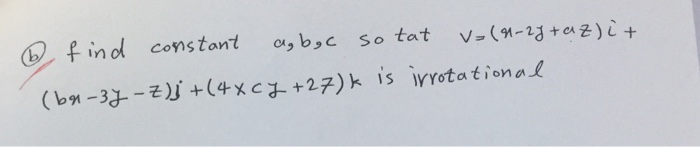 ⓑ find constant a,b,c so tat V=(x-2y+az)i+
(bx-3y-z)j+(4xcy+2z)k is irrotational